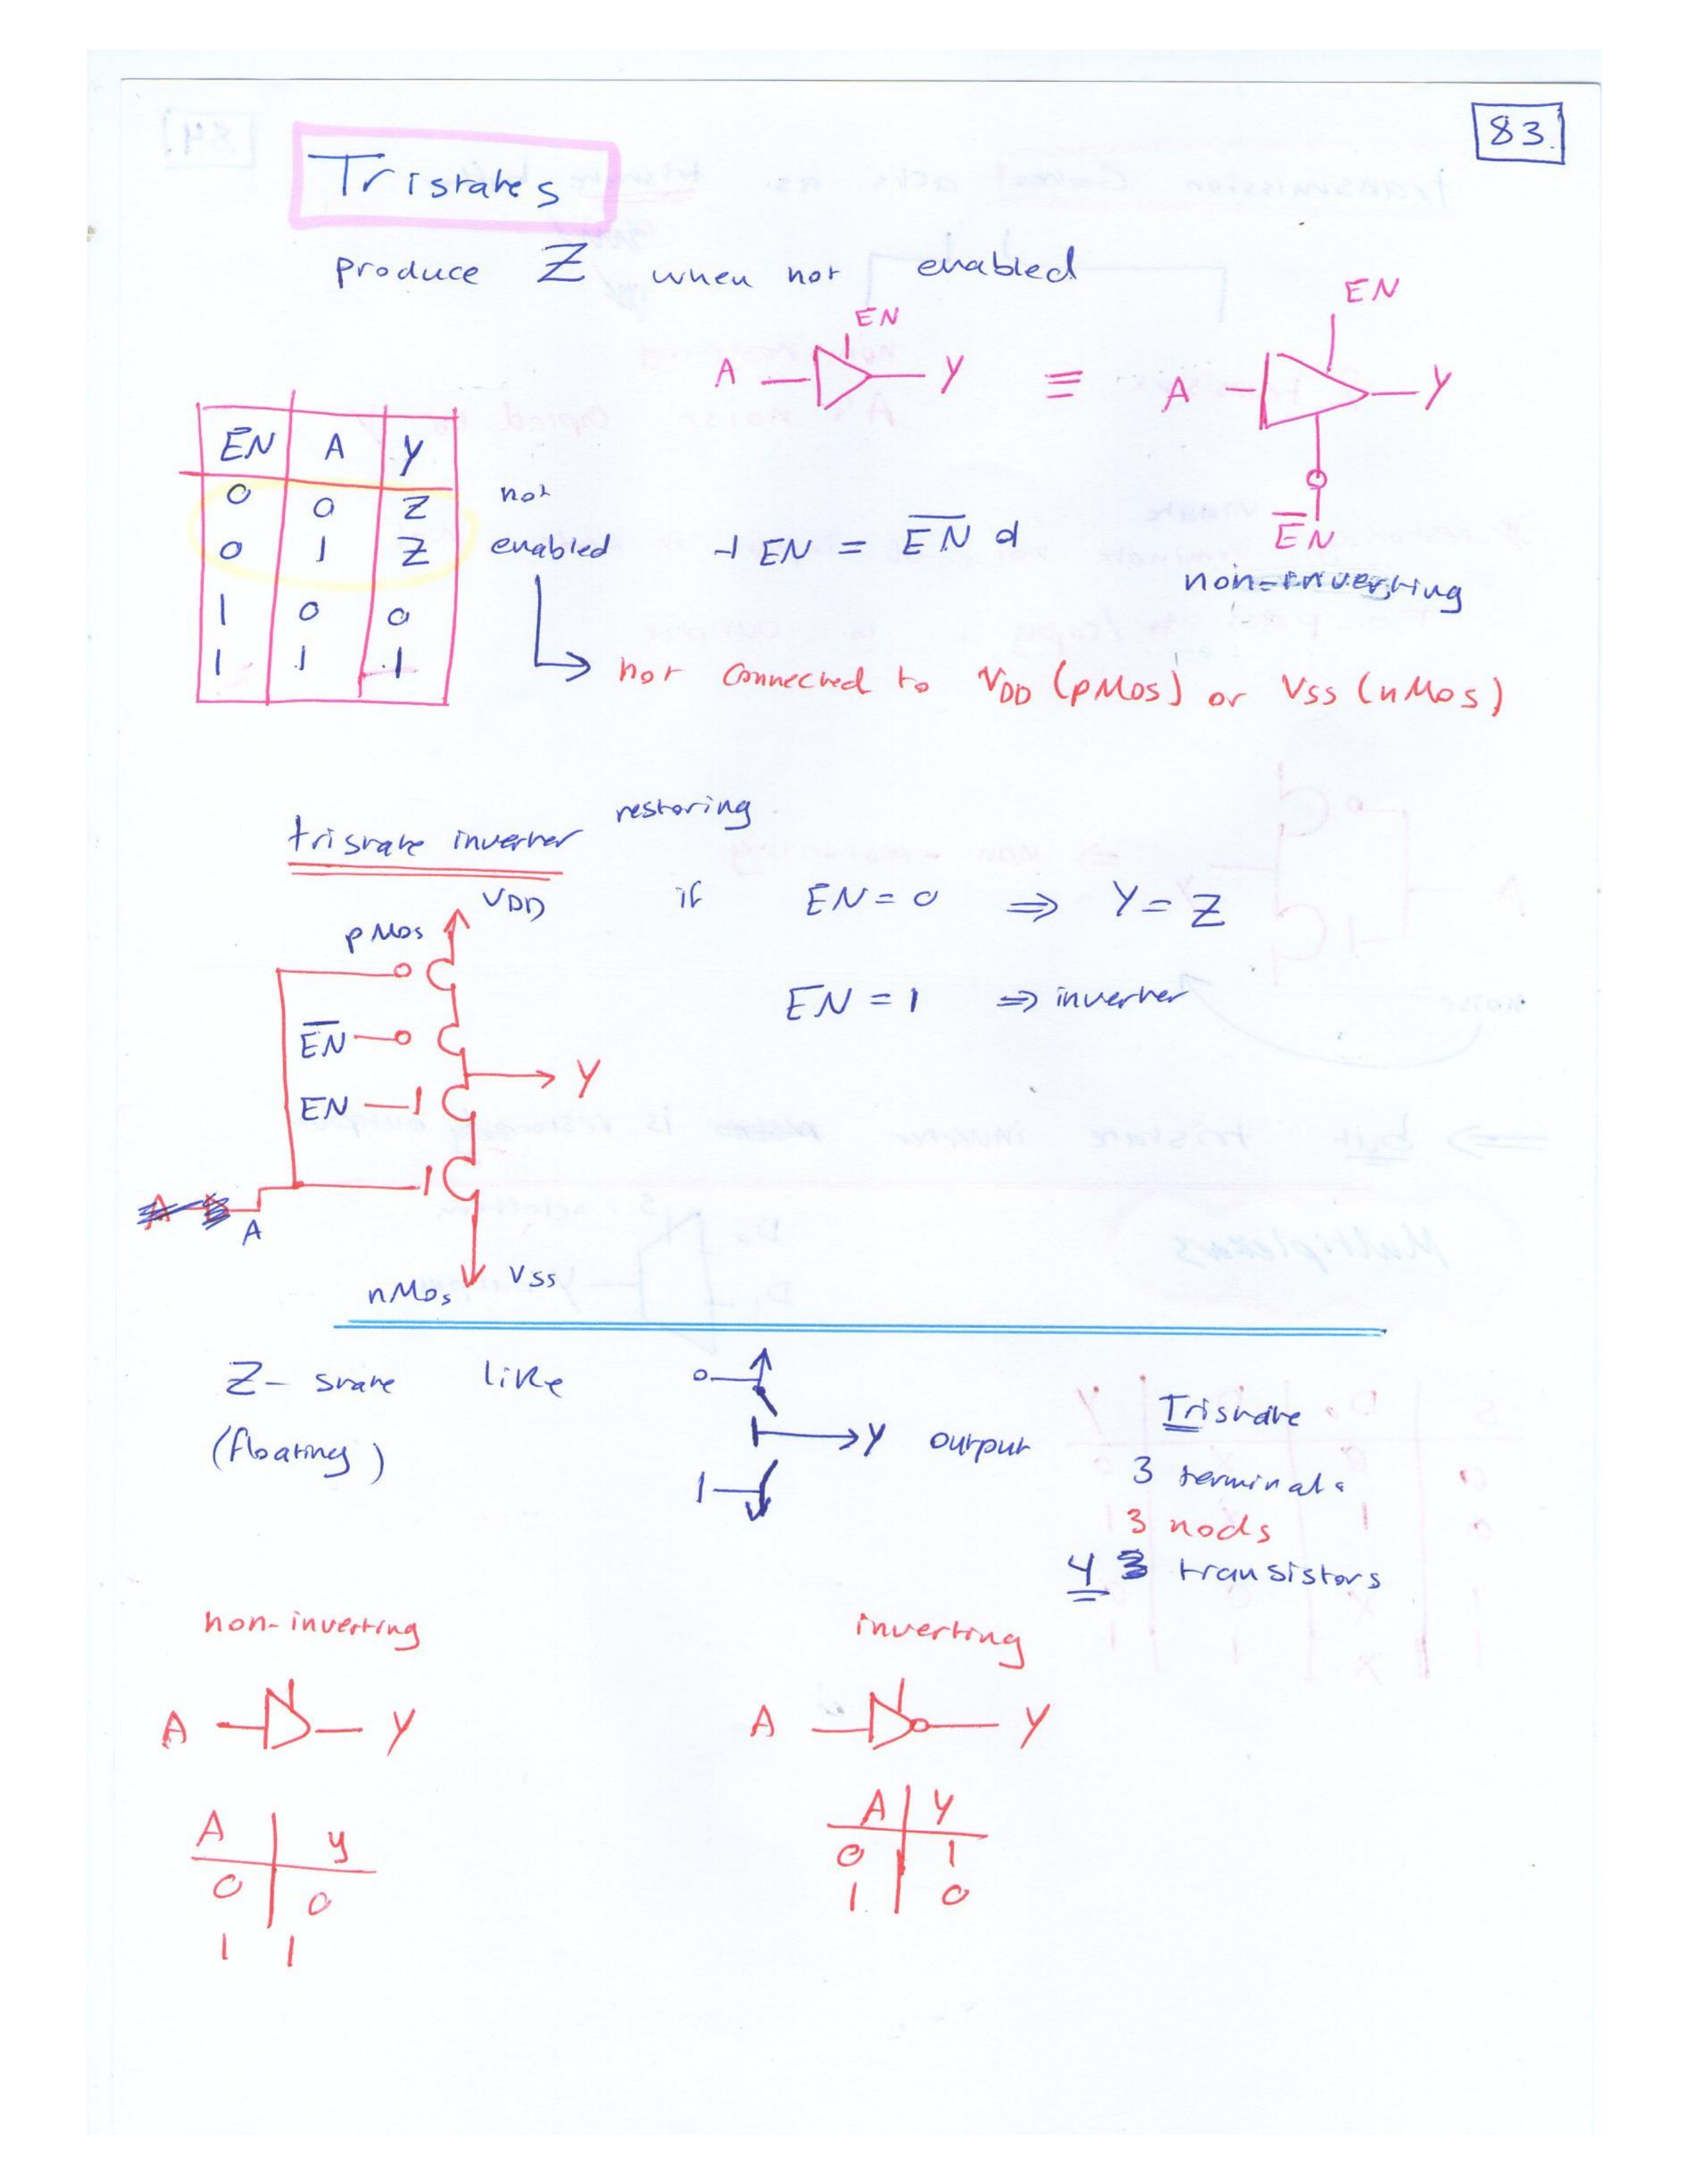 83.
Tristates
produce Z when not enabled
EN
A Y ≡ A Y
EN
E̅N̅
non-inverting
EN A Y
0 0 Z
0 1 Z
1 0 0
1 1 1
not
enabled
EN = E̅N̅
not connected to VDD (pMos) or VSS (nMos)
tristate inverter restoring
VDD
pMos
if EN = 0 ⇒ Y = Z
EN = 1 ⇒ inverter
E̅N̅
Y
EN
A
VSS
nMos
Z- state like
(floating)
0
Y output
1
Tristate
3 terminals
3 nods
4 transistors
non-inverting
A Y
A y
0 0
1 1
inverting
A Y
A Y
0 1
1 0